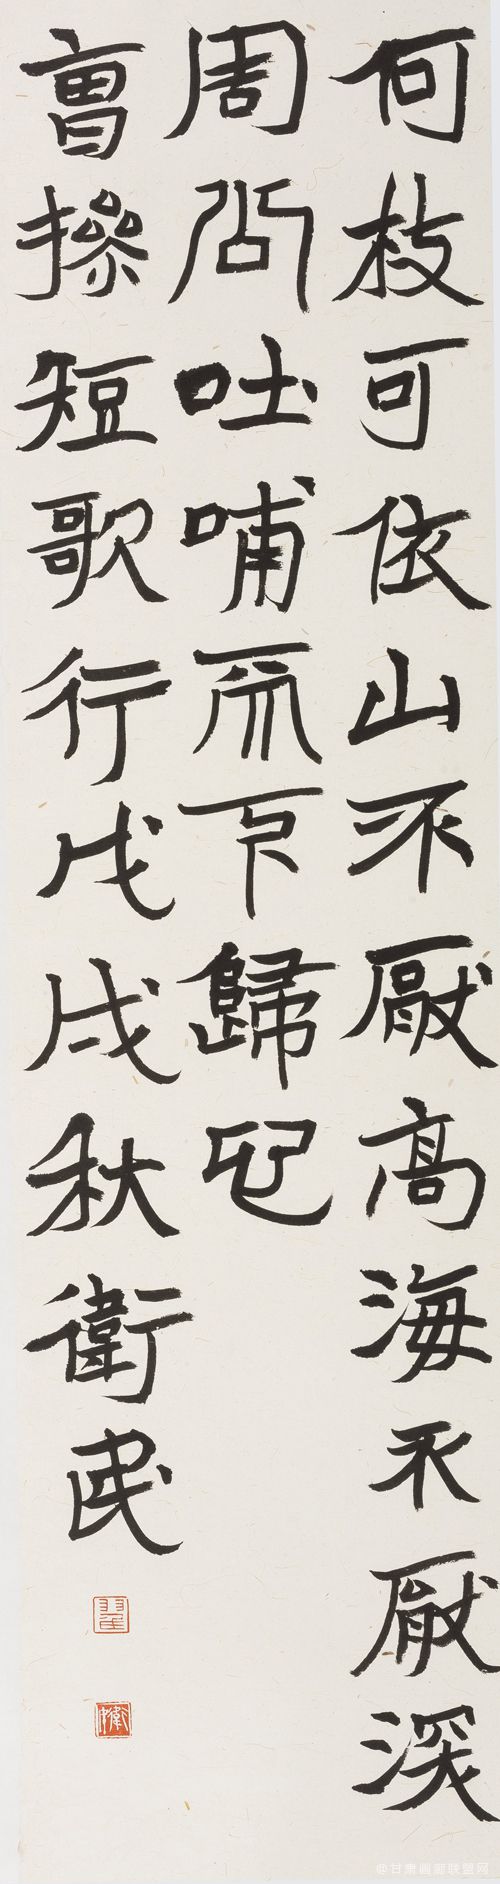 何枝可依山不厭高海不厭深
周公吐哺天下歸心
曹操短歌行戊戌秋衛民
翟
@甘肃画廊联盟网